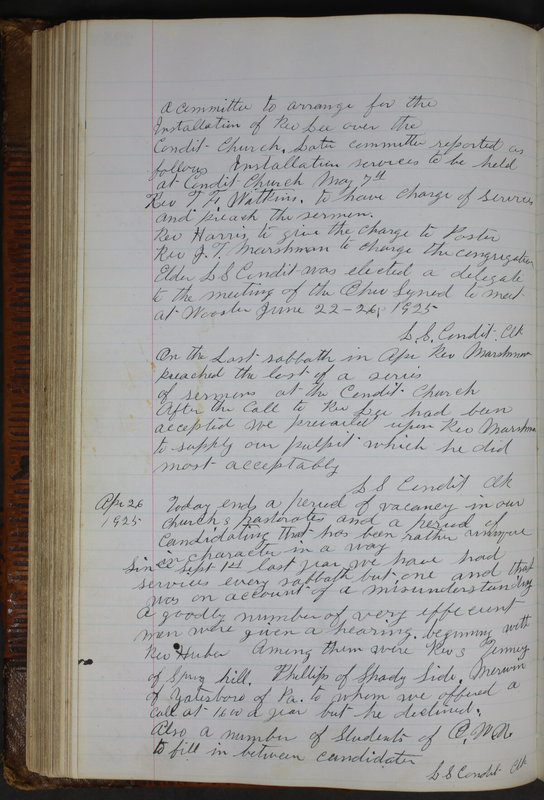 a committee to arrange for the
Installation of Rev Lee over the
Condit Church. Later committee reported as
follows Installation services to be held
at Condit Church May 7th
Rev T. F. Watkins. to have charge of services
and preach the sermon.
Rev Harris to give the charge to Pastor
Rev J. T. Marshman to charge the congregation
Elder L S Condit was elected a delegate
to the meeting of the Ohio Synod to meet
at Wooster June 22-26, 1925
L. S. Condit. Clk
On the Last sabbath in Apr Rev Marshman
preached the last of a series
of sermons at the Condit Church
After the Call to Rev Lee had been
accepted we prevailed upon Rev Marshman
to supply our pulpit which he did
most acceptably
L S Condit Clk
Apr 26
1925
Today ends a period of vacancy in our
church's pastorates and a period of
Candidating that has been rather unique
in character in a way
Since Sept 14 last year we have had
services every sabbath but one and that
was on account of a misunderstanding
A goodly number of very efficient
men were given a hearing. beginning with
Rev Huber Among them were Revs Penney
of Spring hill. Phillips of Shady Side. Merwin
of Yatesboro of Pa. to whom we offered a
call at 1600 a year but he declined.
Also a number of Students of
to fill in between candidates
L S Condit Clk